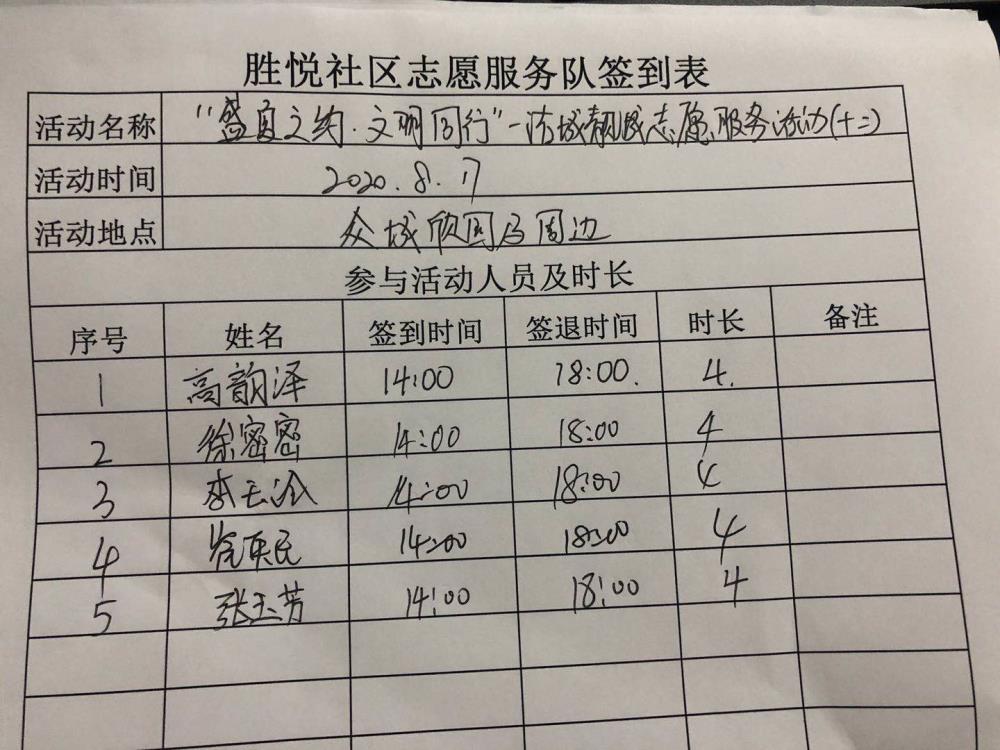 胜悦社区志愿服务队签到表
活动名称 “盛夏之约·文明同行”-洁城靓城志愿服务活动(十二)
活动时间 2020.8.17
活动地点 众城欣园及周边
参与活动人员及时长
序号 姓名 签到时间 签退时间 时长 备注
1 高韵泽 14:00 18:00. 4.
2 徐密密 14:00 18:00 4
3 14:00 18:00 4
4 14:00 18:00 4
5 张玉芳 14:00 18:00 4